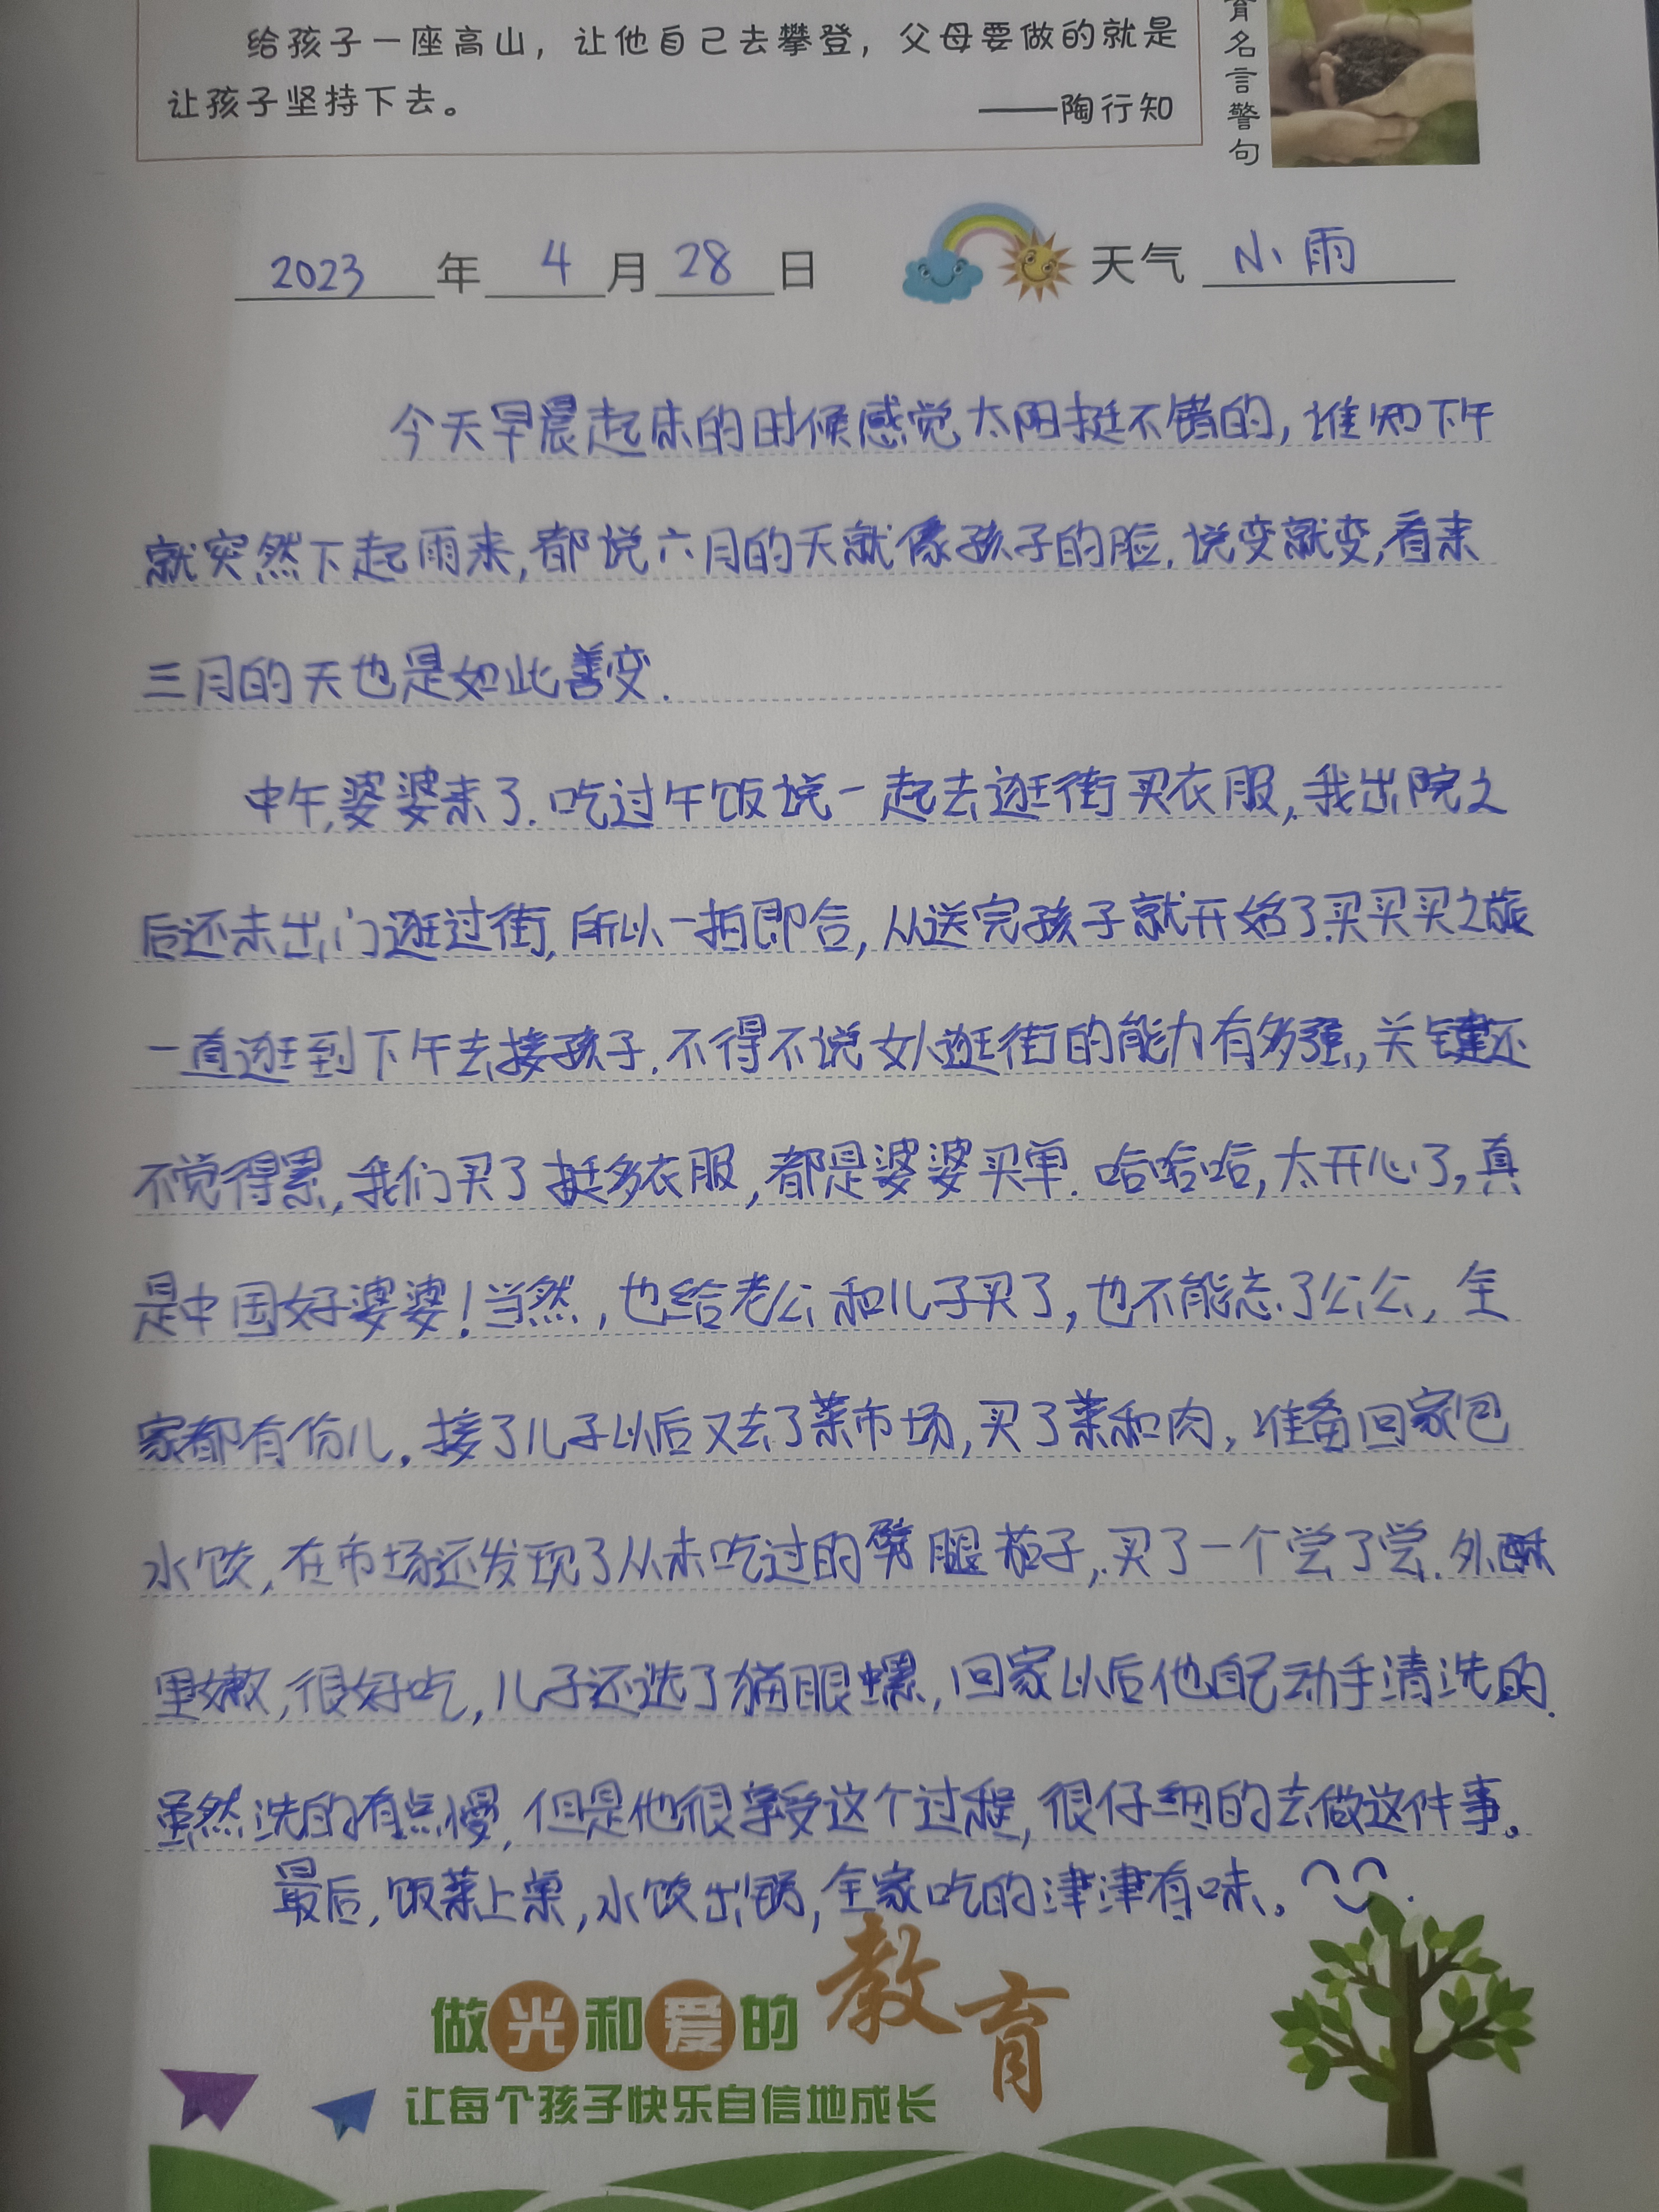 给孩子一座高山，让他自己去攀登，父母要做的就是
让孩子坚持下去。
——陶行知
育名言警句
2023年4月28日 天气 小雨
今天早晨起来的时候感觉太阳挺不错的,谁知下午
就突然下起雨来,都说六月的天就像孩子的脸.说变就变,看来
三月的天也是如此善变.
中午,婆婆来了.吃过午饭说一起去逛街买衣服,我出院之
后还未出门逛过街,所以一拍即合,从送完孩子就开始了买买买之旅
一直逛到下午去接孩子.不得不说女人逛街的能力有多强,关键还
不觉得累,我们买了挺多衣服,都是婆婆买单.哈哈哈,太开心了,真
是中国好婆婆!当然,也给老公和儿子买了,也不能忘了公公,全
家都有份儿.接了儿子以后又去了菜市场,买了菜和肉,准备回家包
水饺,在市场还发现了从未吃过的劈腿茄子,买了一个尝了尝.外酥
里嫩,很好吃,儿子还选了猫眼螺,回家以后他自己动手清洗的.
虽然洗的有点慢,但是他很享受这个过程,很仔细的去做这件事。
最后,饭菜上桌,水饺出锅,全家吃的津津有味。
做光和爱的教育
让每个孩子快乐自信地成长